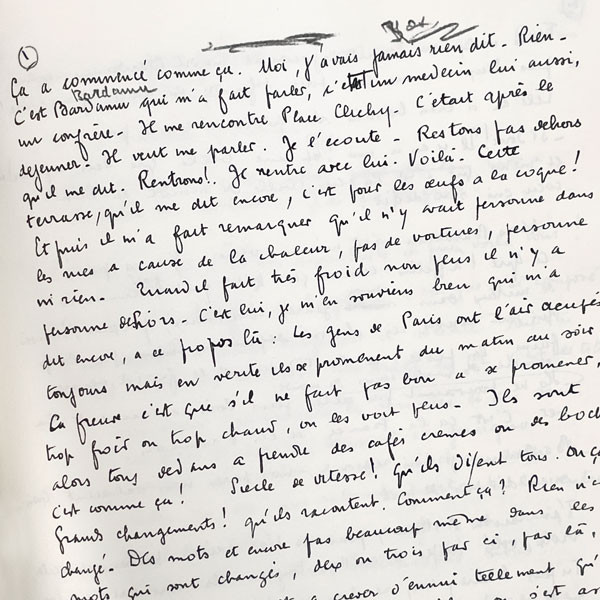 1
Ça a commencé comme ça. Moi, j'avais jamais rien dit. Rien.
Bardamu
C'est Bardamu qui m'a fait parler, c'était un medecin lui aussi,
un confrère. Il me rencontre Place Clichy. C'etait après le
dejeuner. Il veut me parler. Je l'écoute. Restons pas dehors
qu'il me dit. Rentrons! Je rentre avec lui. Voilà. Cette
terrasse, qu'il me dit encore, c'est pour les œufs a la coque!
Et puis il m'a fait remarquer qu'il n'y avait personne dans
les rues a cause de la chaleur, pas de voitures, personne
ni rien. Quand il fait très froid non plus il n'y a
personne dehors. C'est lui, je m'en souviens bien qui m'a
dit encore, a ce propos là: Les gens de Paris ont l'air occupés
toujours mais en verite ils se promènent du matin au soir
La preuve c'est que s'il ne fait pas bon a se promener,
trop froid ou trop chaud, on les voit plus. Ils sont
alors tous dedans a prendre des cafés cremes ou des boc
c'est comme ça! Siecle de vitesse! qu'ils disent tous. Où ça
Grands changements! qu'ils racontent. Comment ça? Rien n'e
changé. Des mots et encore pas beaucoup même dans les
mots qui sont changés, deux ou trois par ci, par là,
a crever d'ennui tellement qu'